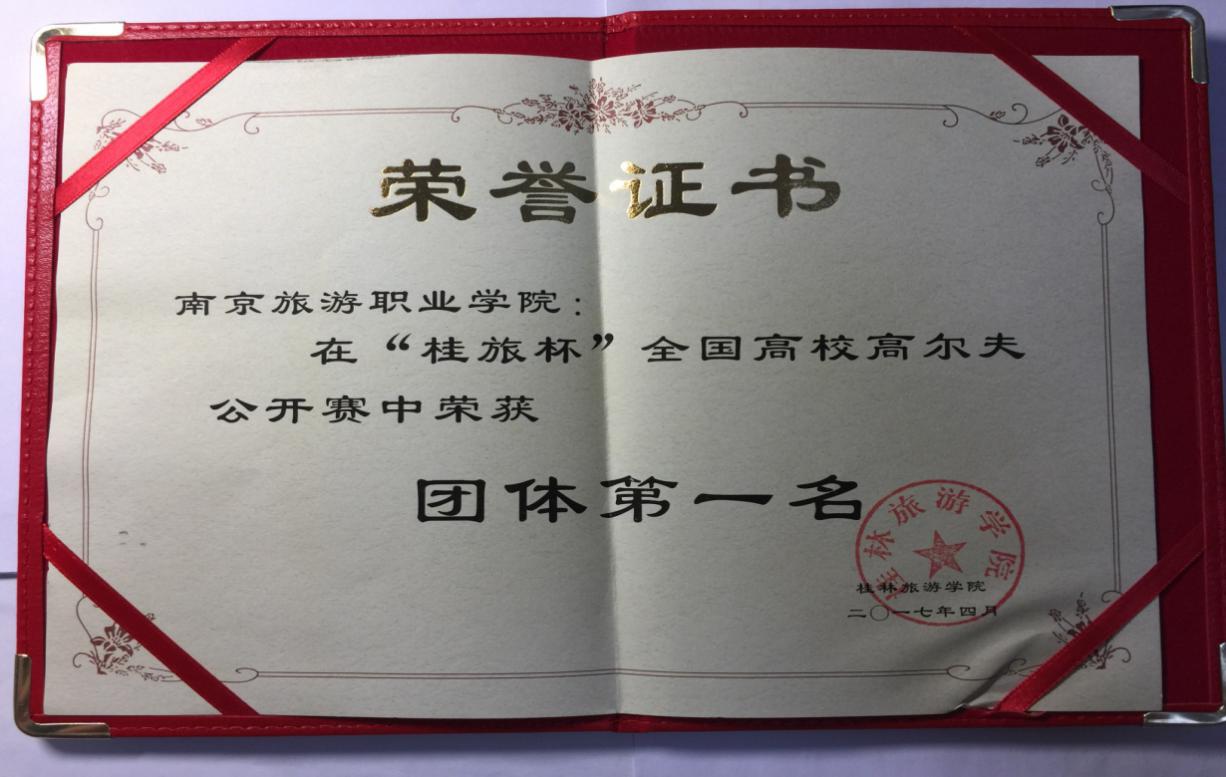 荣誉证书
南京旅游职业学院：
在“桂旅杯”全国高校高尔夫
公开赛中荣获
团体第一名
桂林旅游学院
桂林旅游学院
二〇一七年四月